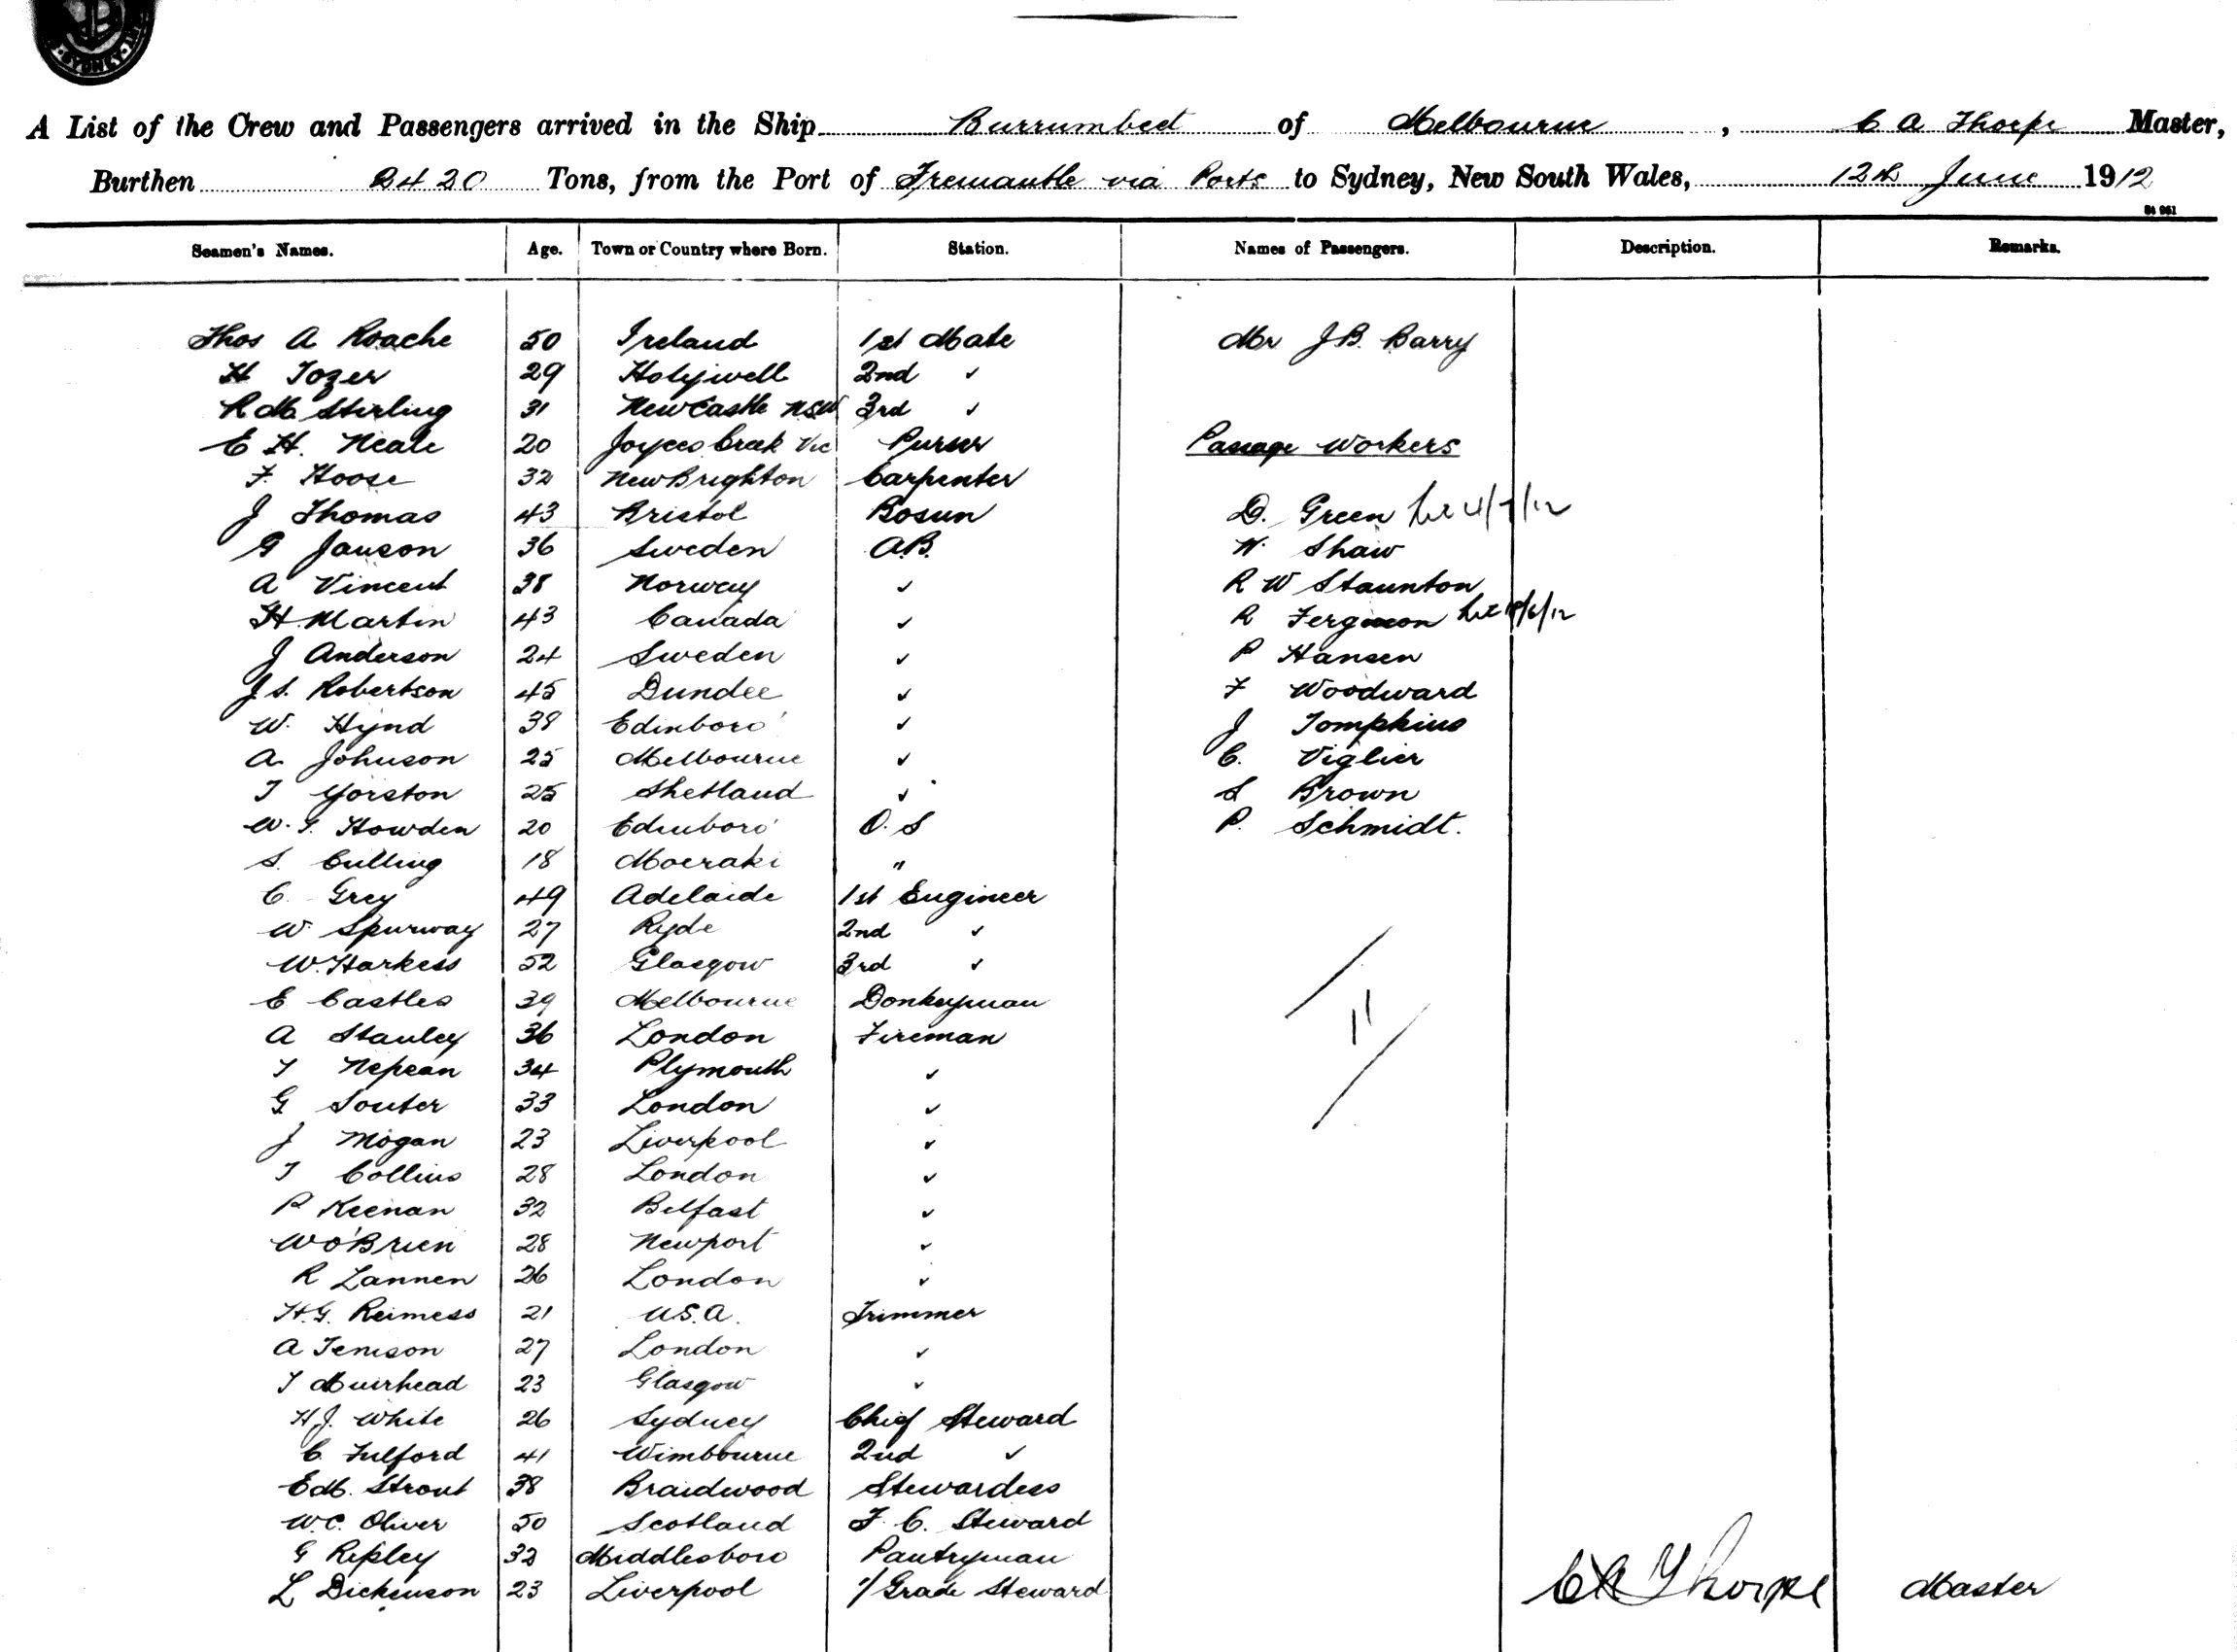 SYDNEY
A List of the Crew and Passengers arrived in the Ship Burrumbeet of Melbourne, C A Thorpe Master,
Burthen 2420 Tons, from the Port of Fremantle via Ports to Sydney, New South Wales, 12th June 1912
Seamen's Names. Age. Town or Country where Born. Station. Names of Passengers. Description. Remarks.
Thos A Roache 50 Ireland 1st Mate Mr J.B. Barry
H Tozer 29 Holywell 2nd ✓
R M Stirling 31 Newcastle NSW 3rd ✓
E H. Neale 20 Joyces Creek Vic Purser Passage Workers
F. Hoose 32 New Brighton Carpenter
J Thomas 43 Bristol Bosun D. Green 4/7/12
G Janson 36 Sweden A.B. W. Shaw
A Vincent 38 Norway ✓ R W Staunton
H. Martin 43 Canada ✓ R Ferguson /6/12
J Anderson 24 Sweden ✓ P Hansen
J S. Robertson 45 Dundee ✓ F Woodward
W. Hynd 38 Edinboro' ✓ J Tompkins
A. Johnson 25 Melbourne ✓ C. Viglier
T Yorston 25 Shetland ✓ S Brown
W. G. Howden 20 Edinboro' O. S P. Schmidt.
S. Culling 18 Moeraki "
C. Grey 49 Adelaide 1st Engineer
W. Spurway 27 Ryde 2nd ✓
W. Harkess 52 Glasgow 3rd ✓
E Castles 39 Melbourne Donkeyman
A Stanley 36 London Fireman 11
T Nepean 34 Plymouth ✓
G Souter 33 London ✓
J Mogan 23 Liverpool ✓
T Collins 28 London ✓
P Keenan 32 Belfast ✓
W O'Brien 28 Newport ✓
R Lannen 26 London ✓
H.G. Reimess 21 U.S.A. Trimmer
A Tenison 27 London ✓
T Muirhead 23 Glasgow ✓
H.J. White 26 Sydney Chief Steward
C. Fulford 41 Wimbourne 2nd ✓
E M. Strout 38 Braidwood Stewardess
W.C. Oliver 50 Scotland F. C. Steward
G Ripley 32 Middlesboro Pantryman
L Dickinson 23 Liverpool 1/ Grade Steward C A Thorpe Master